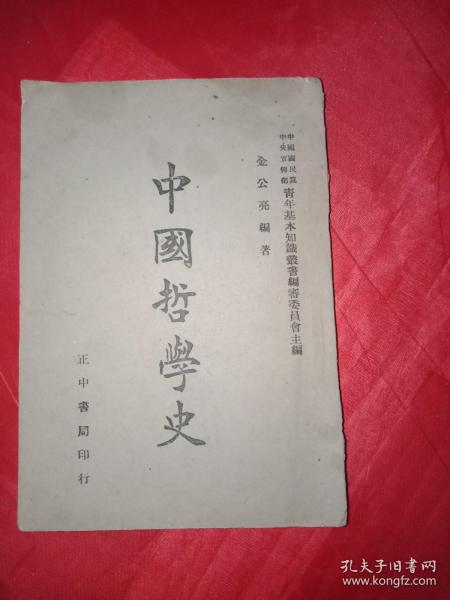 中國國民黨
中央宣傳部
青年基本知識叢書編審委員會主編
金公亮編著
中國哲學史
正中書局印行
孔夫子旧书网
www.kongfz.com